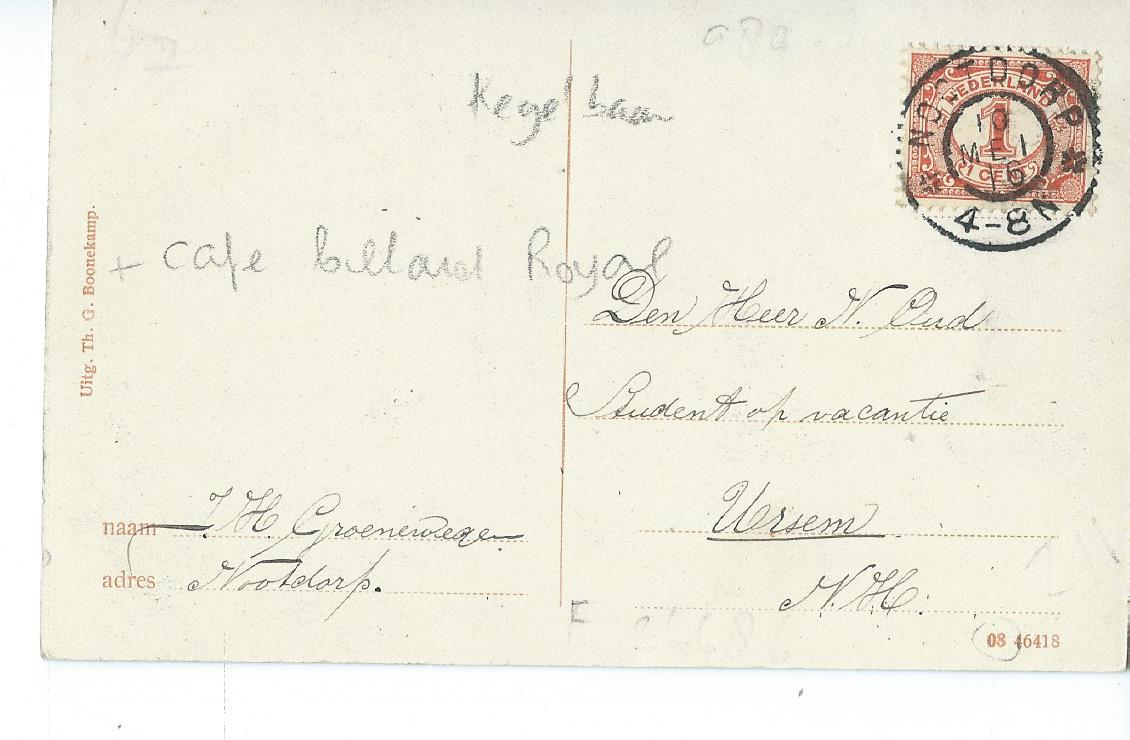 Kegelbaan
+ Cafe billard Royal
Uitg. Th. G. Boonekamp.
NOOTDORP
10
MEI
4-8N
NEDERLAND
1
1 CENT
Den Heer N. Oud
Student op vacantie
Ursem
N.H.
naam J. H. Groenewegen
adres Nootdorp.
08 46418